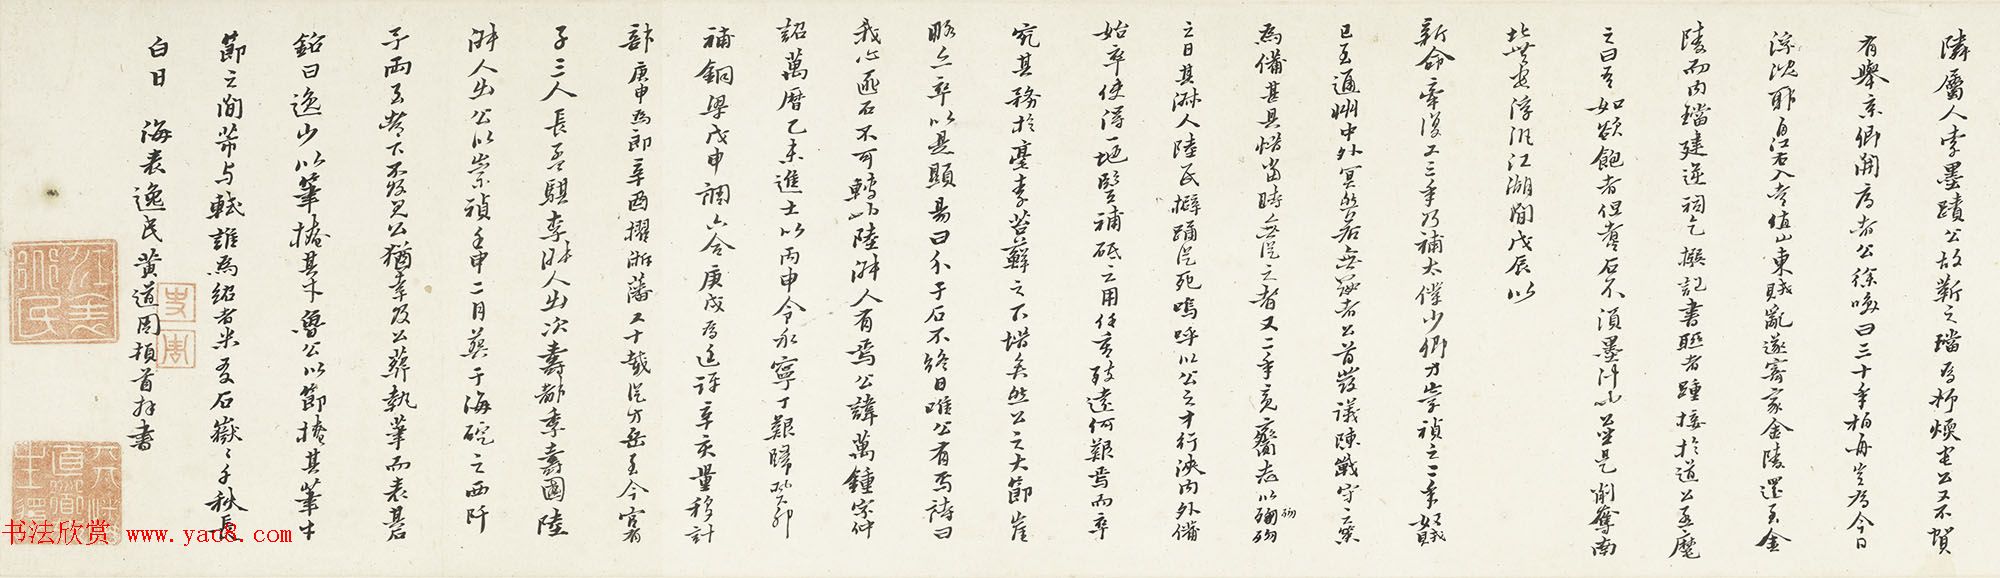 隣屬人索墨蹟公故靳之璫為柳煥宅公又不賀
有舉京卿開府者公徐曰三十年栢冉豈為今日
浮沈耶自江右入考值山東賊亂遂寄家金陵還至金
陵而內璫建逆祠乞撰記書匾者踵接於道公亟麾
之曰吾如欲飽者但煮石不須墨汁也並是削奪南
北出浮沉江湖間戊辰以
新命牽復又三年乃補太僕少卿方崇禎之三年奴賊
已至通州中外冥然若無謀者公首發議陳戰守之策
為備甚具惜當時無從之者又二年竟齎志以殉
之日其淋人陸氏擗踊從死嗚呼以公之才行浹內外備
始卒使得一地堅補砥之用任重致遠何艱焉而卒
究其務於臺李苔蘚之下惜矣然公之大節崖
略亦卒以是顯易曰介于石不終日唯公有焉詩曰
我心匪石不可轉也陸淋人有焉公諱萬鍾字仲
詔萬曆乙未進士以丙申令永寧丁艱歸癸卯
補銅梁戊申調六合庚戌為廷評辛亥量移計
部庚申為郎辛酉擢浙藩又十載從方岳至今官有
子三人長孟騏李淋人出次壽都季壽國陸
淋人出公以崇禎壬申二月葬于海碇之西阡
予兩至輦下不及見公猶幸及公葬執筆而表其石
銘曰逸少以筆掩其才魯公以節掩其筆才
節之間芾与軾誰為紹者米友石嶽嶽千秋長
白日 海表逸民黃道周頓首拜書
书法欣赏 www.yac8.com